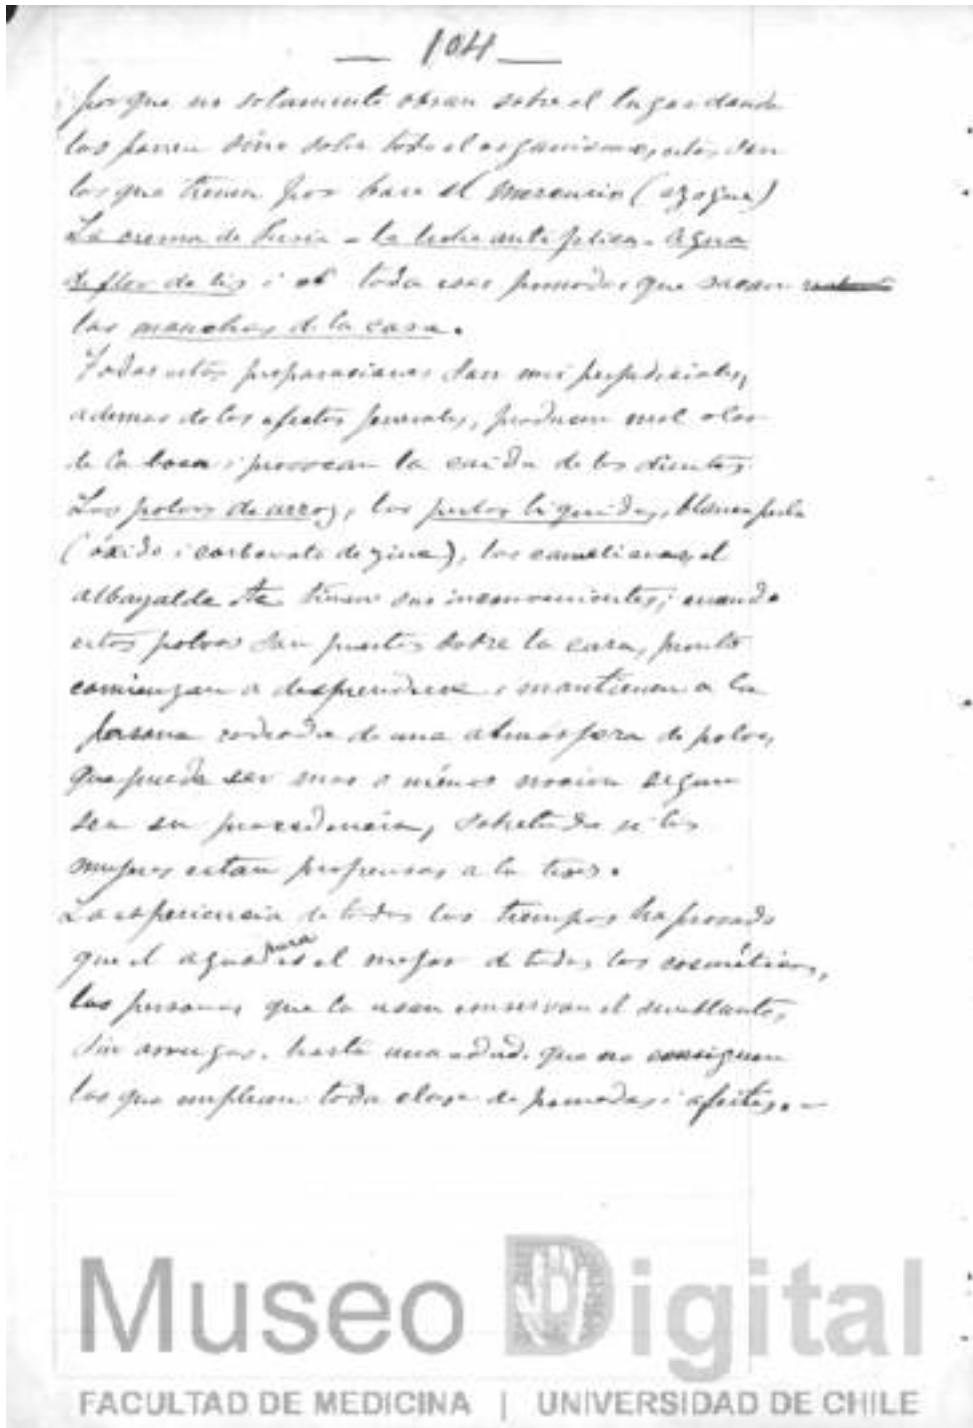 — 104 —
porque no solamente obran sobre el lugar donde
los ponen sino sobre todo el organismo, estos son
los que tienen por base el mercurio (azogue)
La crema de Rusia - la leche antefélica - agua
de flor de lis i toda esas pomadas que sacan
las manchas de la cara.
Todas estas preparaciones son mui perjudiciales,
ademas de los efectos jenerales, producen mal olor
de la boca i provocan la caida de los dientes.
Los polvos de arroz, las perlas liquidas, blanco perla
(óxido i carbonato de zinc), los el
albayalde etc tienen sus inconvenientes; cuando
estos polvos son puestos sobre la cara, pronto
comienzan a desprenderse i mantienen a la
persona rodeada de una atmósfera de polvos,
que puede ser mas o ménos nociva segun
sea su procedencia, sobretodo si las
mujeres estan propensas a la tisis.
La esperiencia de todos los tiempos ha probado
que el agua pura es el mejor de todos los cosméticos,
las personas que la usan conservan el semblante,
sin arrugas, hasta una edad, que no consiguen
las que emplean toda clase de pomadas i afeites. —
Museo Digital
FACULTAD DE MEDICINA | UNIVERSIDAD DE CHILE